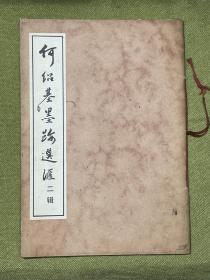 何绍基墨迹選滙二辑